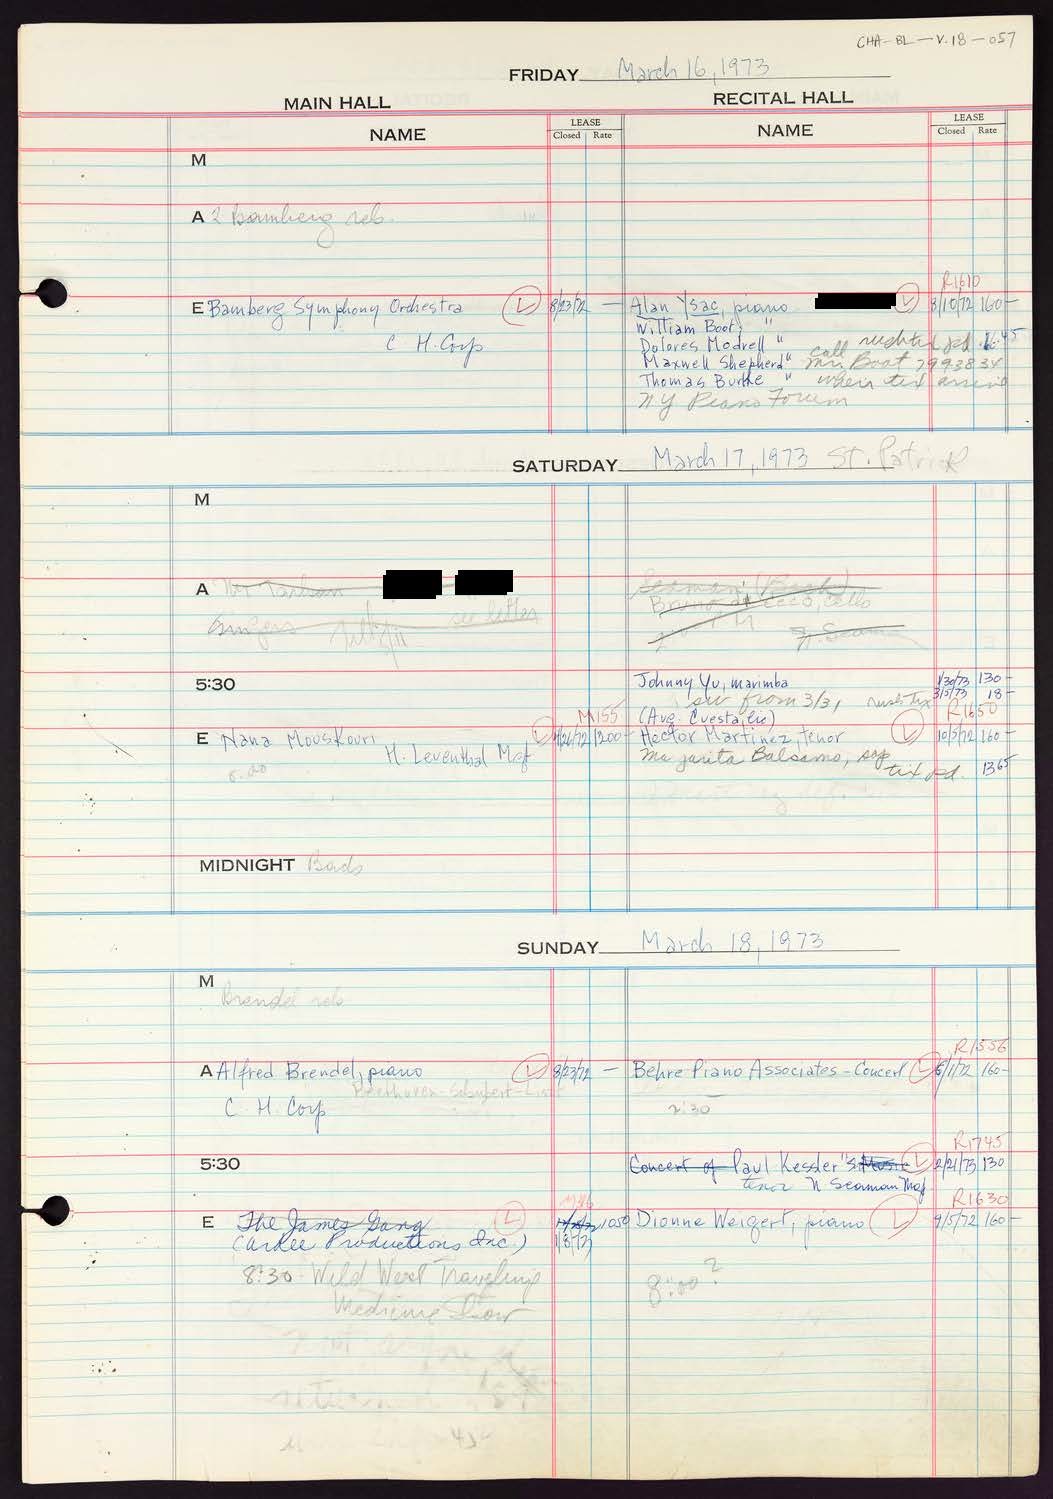 CHA-BL-V.18-057
FRIDAY March 16, 1973
MAIN HALL RECITAL HALL
NAME LEASE Closed Rate NAME LEASE Closed Rate
M
A 2 Bamberg reh.
R1610
E Bamberg Symphony Orchestra L 8/23/72 — Alan Ysac, piano L 8/10/72 160-
William Boot, "
C H. Corp Dolores Modrell " rushtix pd.
Maxwell Shepherd " call Mr. Boot 7993834
Thomas Burke " when tix arrive
NY Piano Forum
SATURDAY March 17, 1973 St. Patrick
M
A
Singers see letter
Bruno di Cecco, cello
N. Seaman
5:30 Johnny Yu, marimba 1/30/73 130-
from 3/3, rush tix 3/5/73 18-
M155 (Aug. Cuesta, lic) R1650
E Nana Mouskouri L 4/26/72 1200- Hector Martinez, tenor L 10/5/72 160-
H. Leventhal Mgt Margarita Balsamo, sop
8:00 tix pd. 1365
MIDNIGHT Bads
SUNDAY March 18, 1973
M Brendel reh
R1556
A Alfred Brendel, piano L 8/23/72 — Behre Piano Associates - Concert L 8/1/72 160-
Beethoven-Schubert-Liszt
C. H. Corp 2:30
R1745
5:30 Concert of Paul Kessler's Music L 2/21/73 130
tenor N Seaman Mgt
M86 R1630
E The James Gang L 1050 Dionne Weigert, piano L 9/5/72 160-
(Ardee Productions Inc.) 1/8/73
8:30 - Wild West Traveling 8:00?
Medicine Show